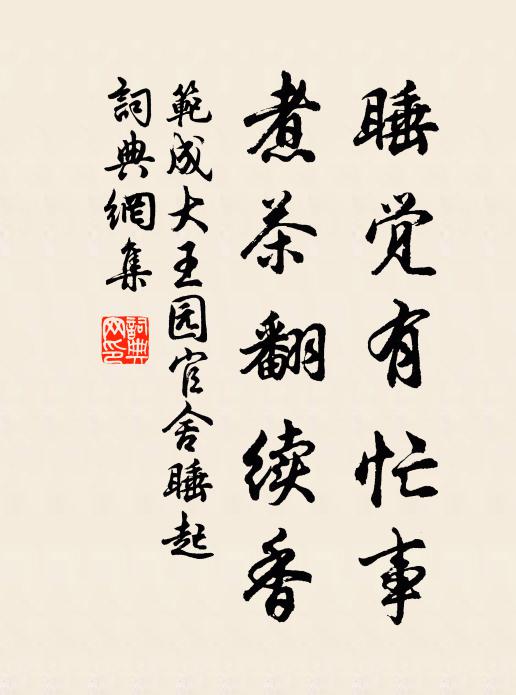 睡觉有忙事
煮茶翻续香
範成大王园官舍睡起
詞典網集
詞典网印